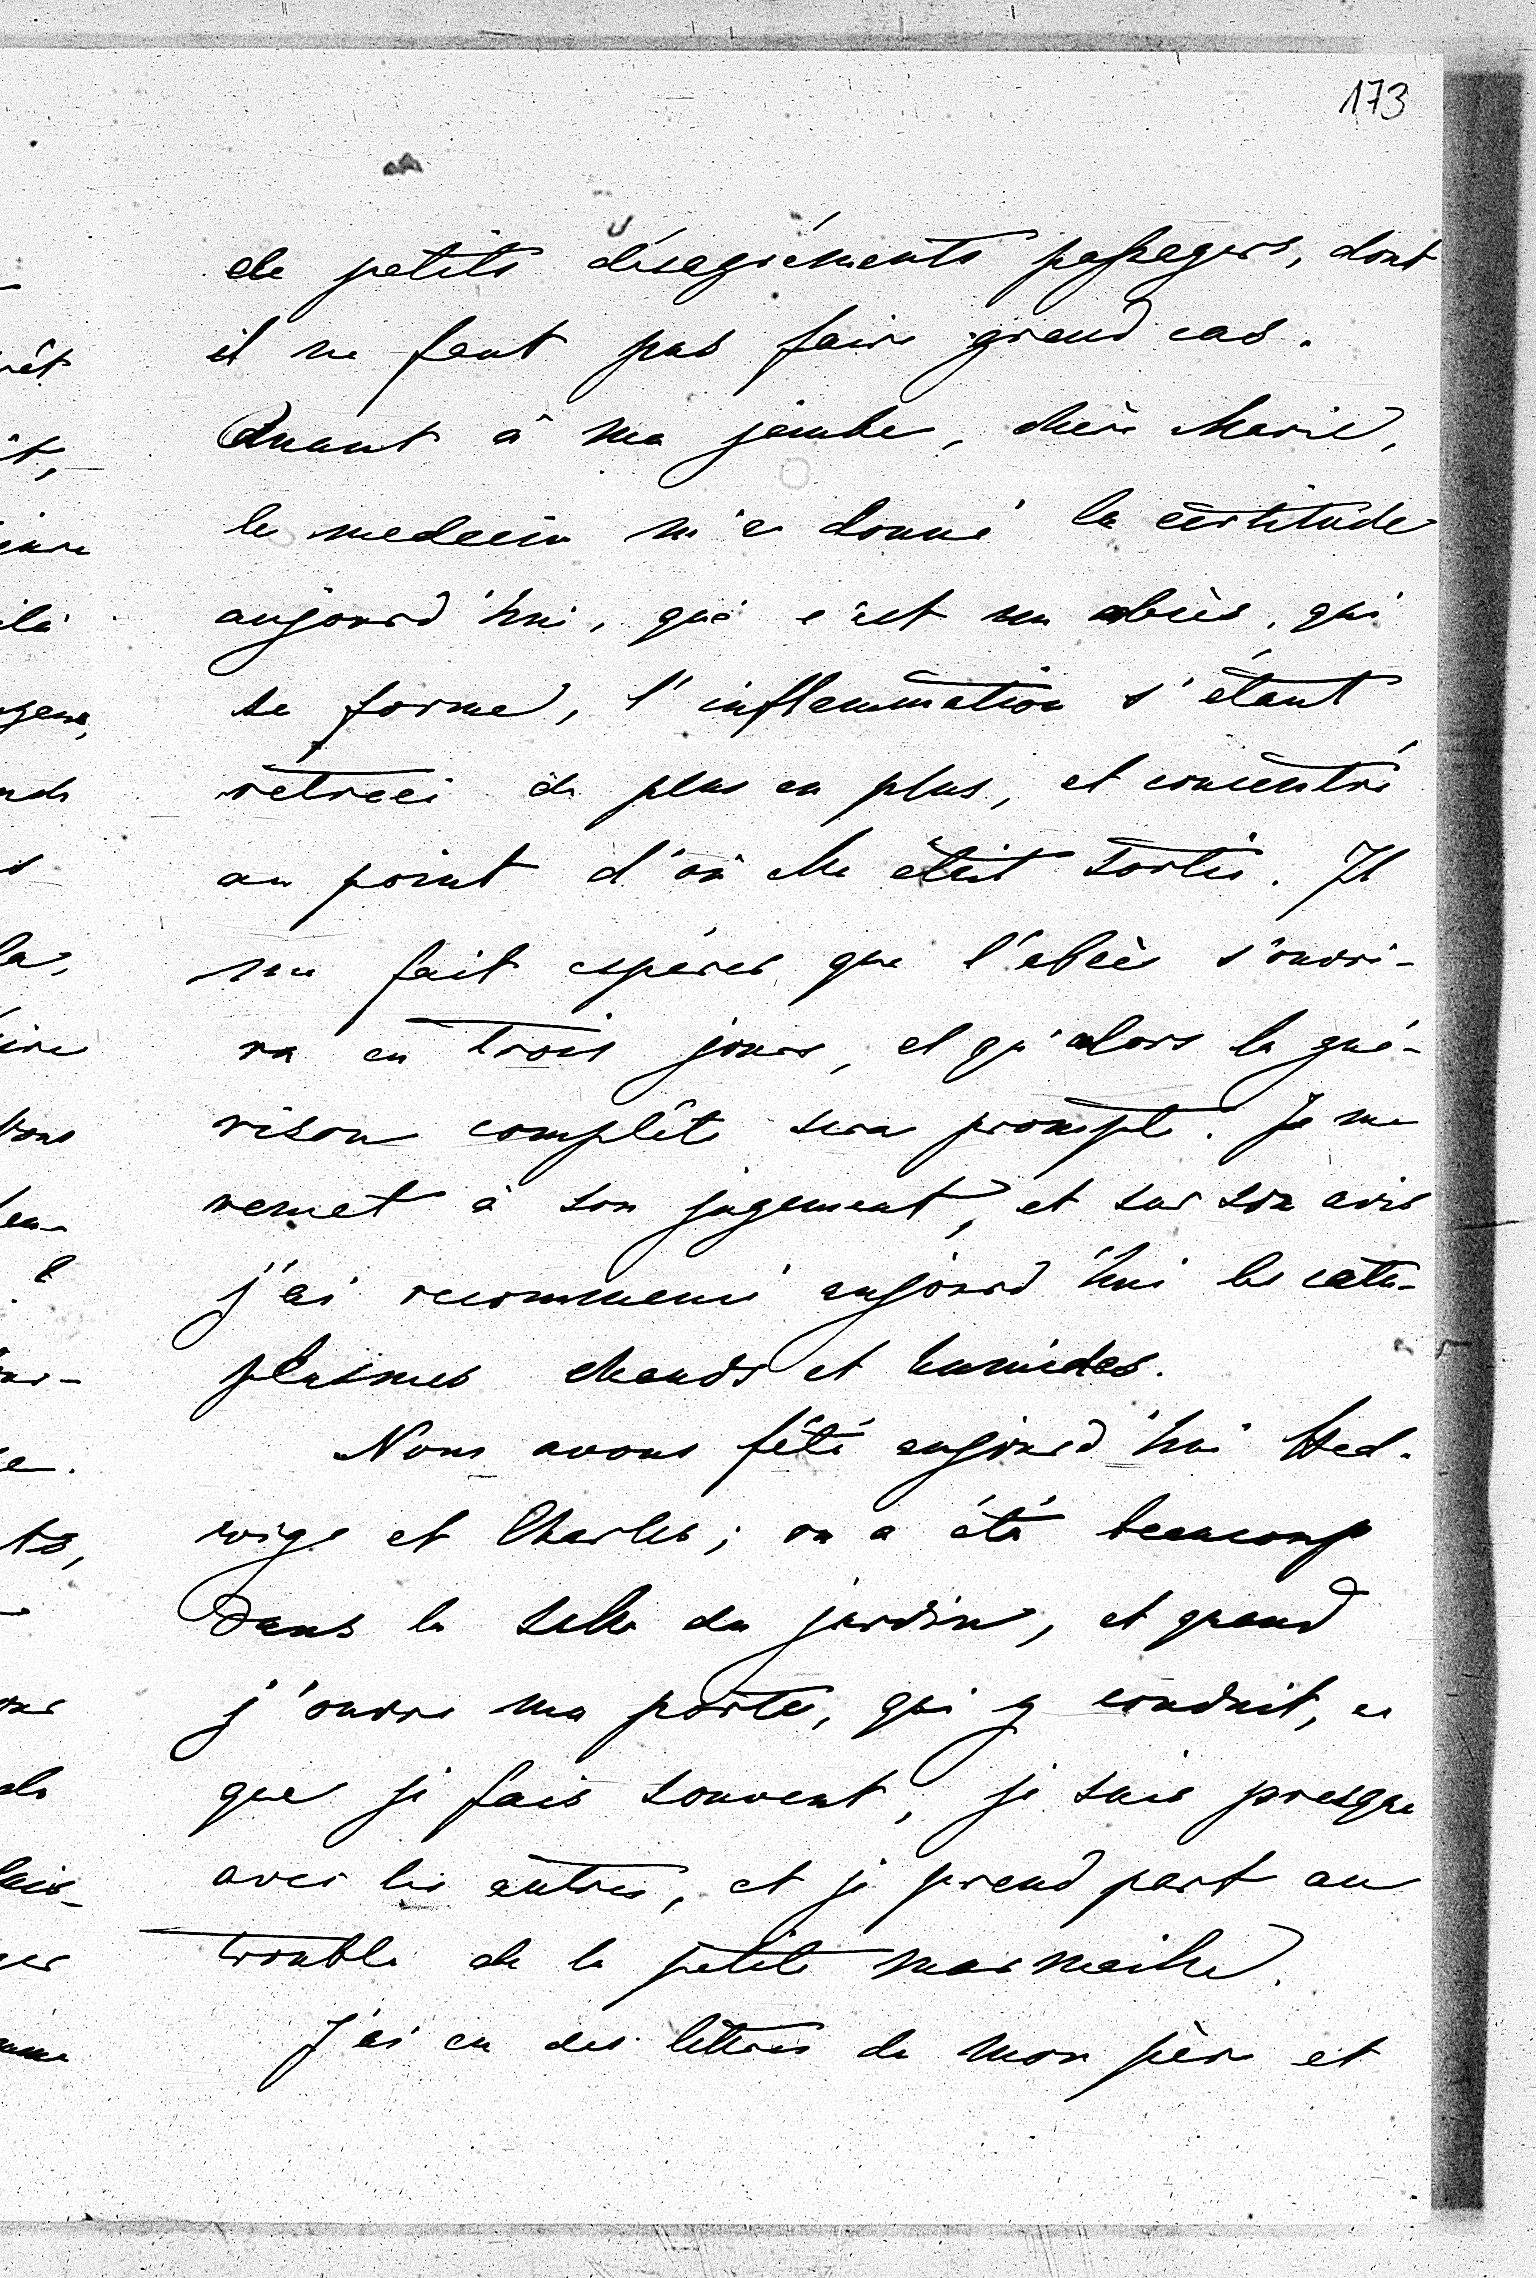 173
de petits désagréments passagers, dont
il ne faut pas faire grand cas.
Quant à ma jambe, chère Marie,
le medecin m'a donné la certitude
aujourd'hui, que c'est un abcès, qui
se forme, l'inflammation s'étant
rétreci de plus en plus, et concentré
au point d'où elle était sortie. Il
me fait espérer que l'abcès s'ouvri-
ra en trois jours, et qu'alors la gué-
rison complête sera prompte. Je me
remet à son jugement, et sur son avis
j'ai recommencé aujourd'hui les cata-
plasmes chauds et humides.
Nous avons fêté aujourd'hui Hed-
wige et Charles; on a été beaucoup
dans la salle du jardin, et quand
j'ouvre ma porte, qui y conduit, ce
que je fais souvent, je suis presque
avec les autres, et je prend part au
trouble de la petite marmaille.
J'ai eu des lettres de mon père et